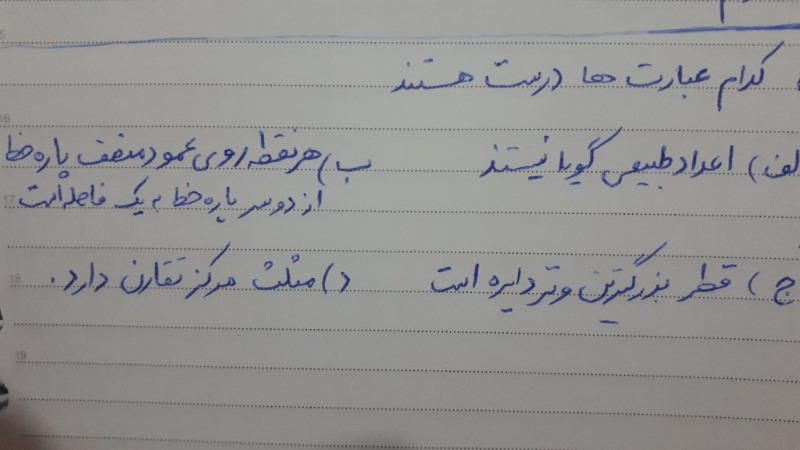 کدام عبارت ها درست هستند
الف) اعداد طبیعی گویا نیستند
ب) هر نقطه روی عمود منصف پاره خط
از دو سر پاره خط به یک فاصله است
ج) قطر بزرگترین وتر دایره است
د) مثلث مرکز تقارن دارد.
16
17
18
19